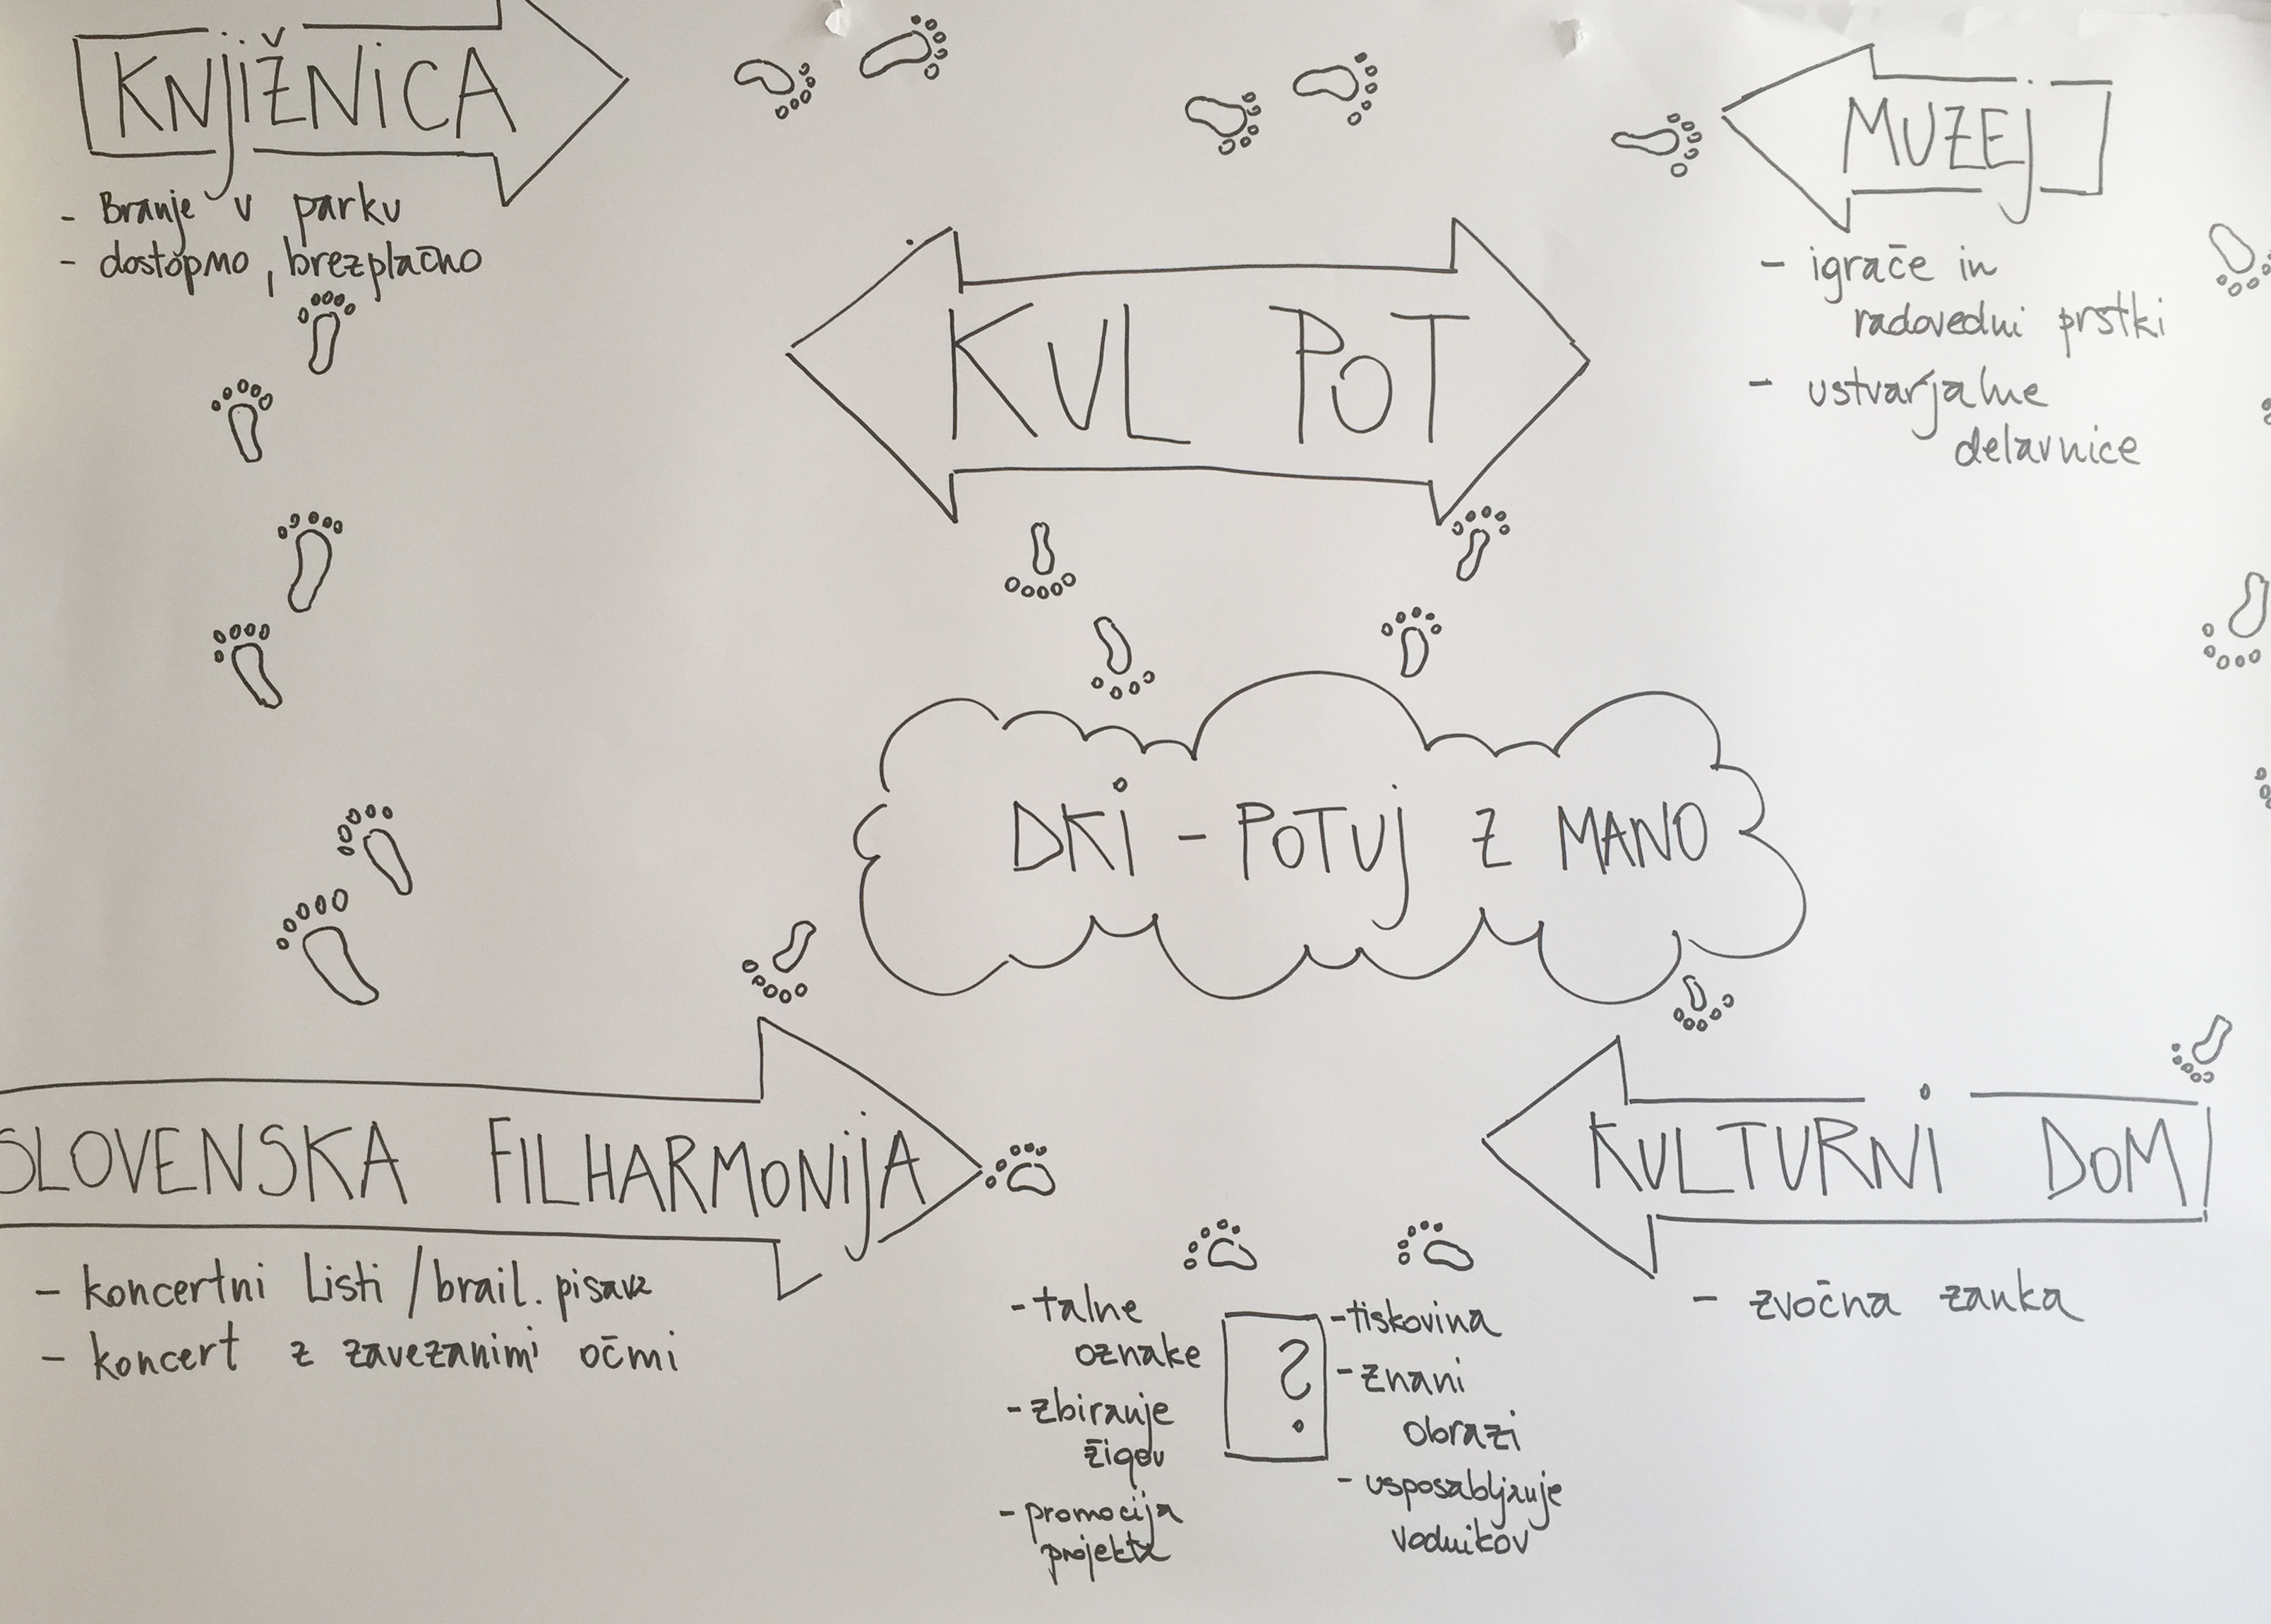 KNJIŽNICA
- Branje v parku
- dostopmo, brezplačno
MUZEJ
- igrače in
radovedni prstki
- ustvarjalne
delavnice
KUL POT
DKI - POTUJ Z MANO
SLOVENSKA FILHARMONIJA
- koncertni listi / brail. pisava
- koncert z zavezanimi očmi
KULTURNI DOM
- zvočna zanka
- talne
oznake
- zbiranje
žigov
- promocija
projekta
?
- tiskovina
- znani
obrazi
- usposabljanje
vodnikov